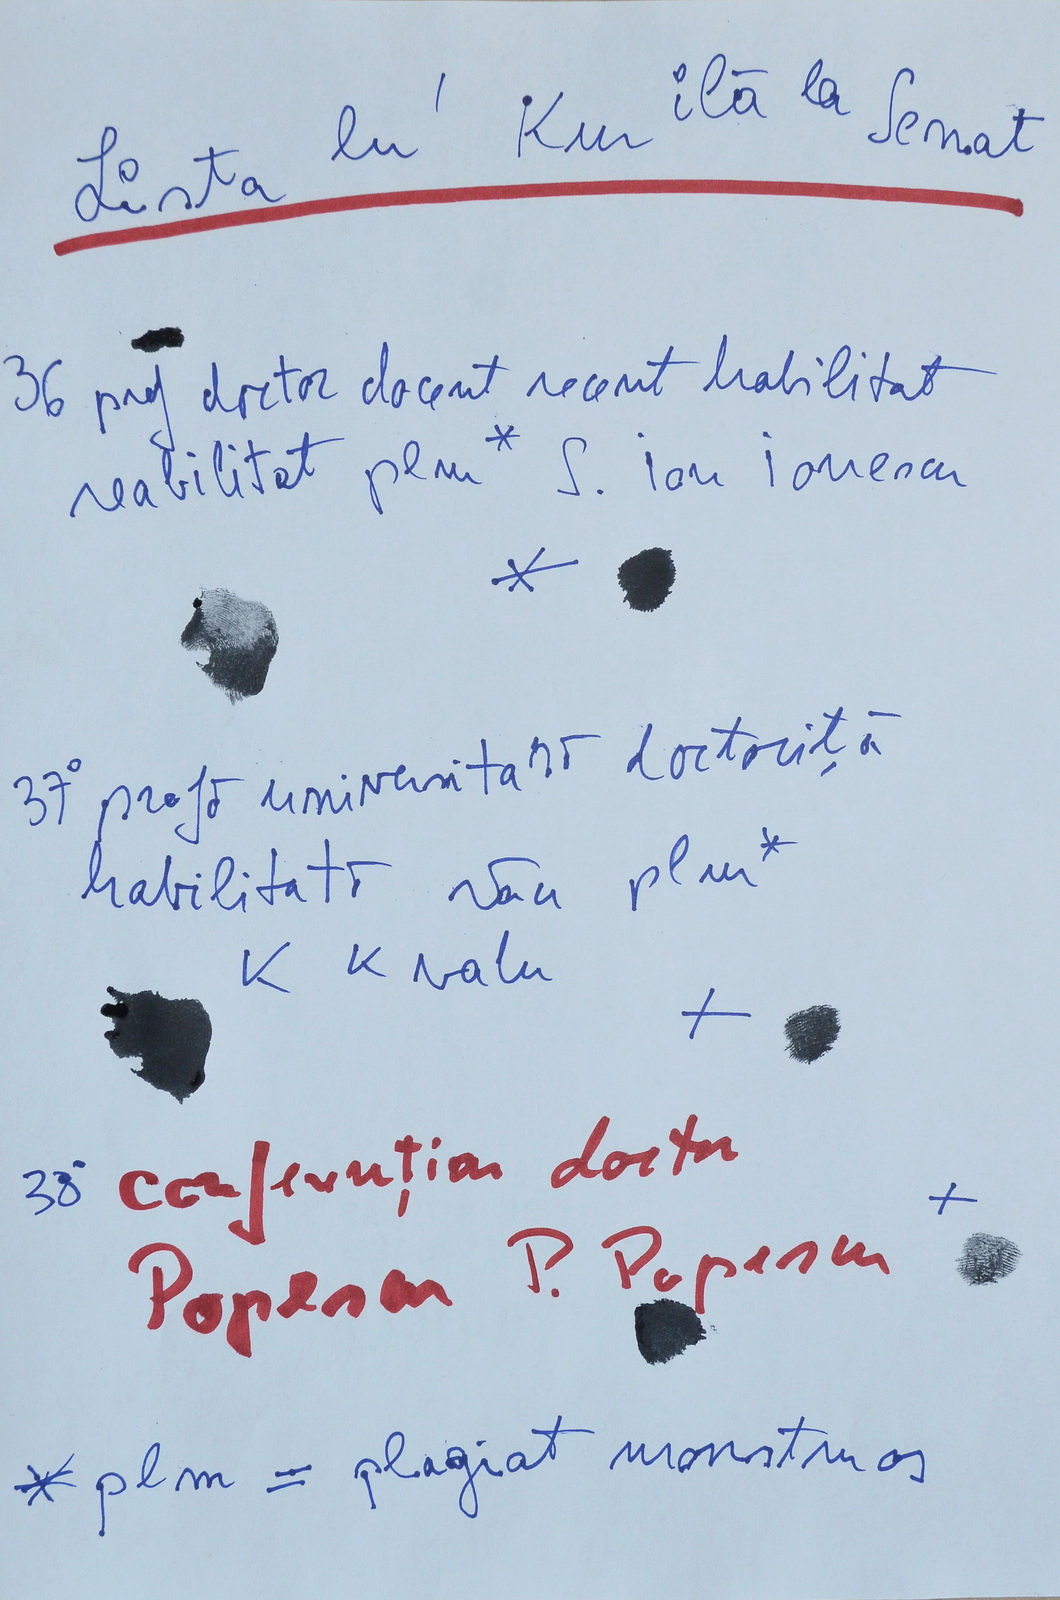 Lista lu' Kur ilă la Senat
36 prof doctor docent recent habilitat
reabilitat plm* S. ion ionescu
*
37° profă universitară doctoriță
habilitată rău plm*
K K valu
+
38° conferențiar doctor
+
Popescu P. Popescu
* plm = plagiat monstruos